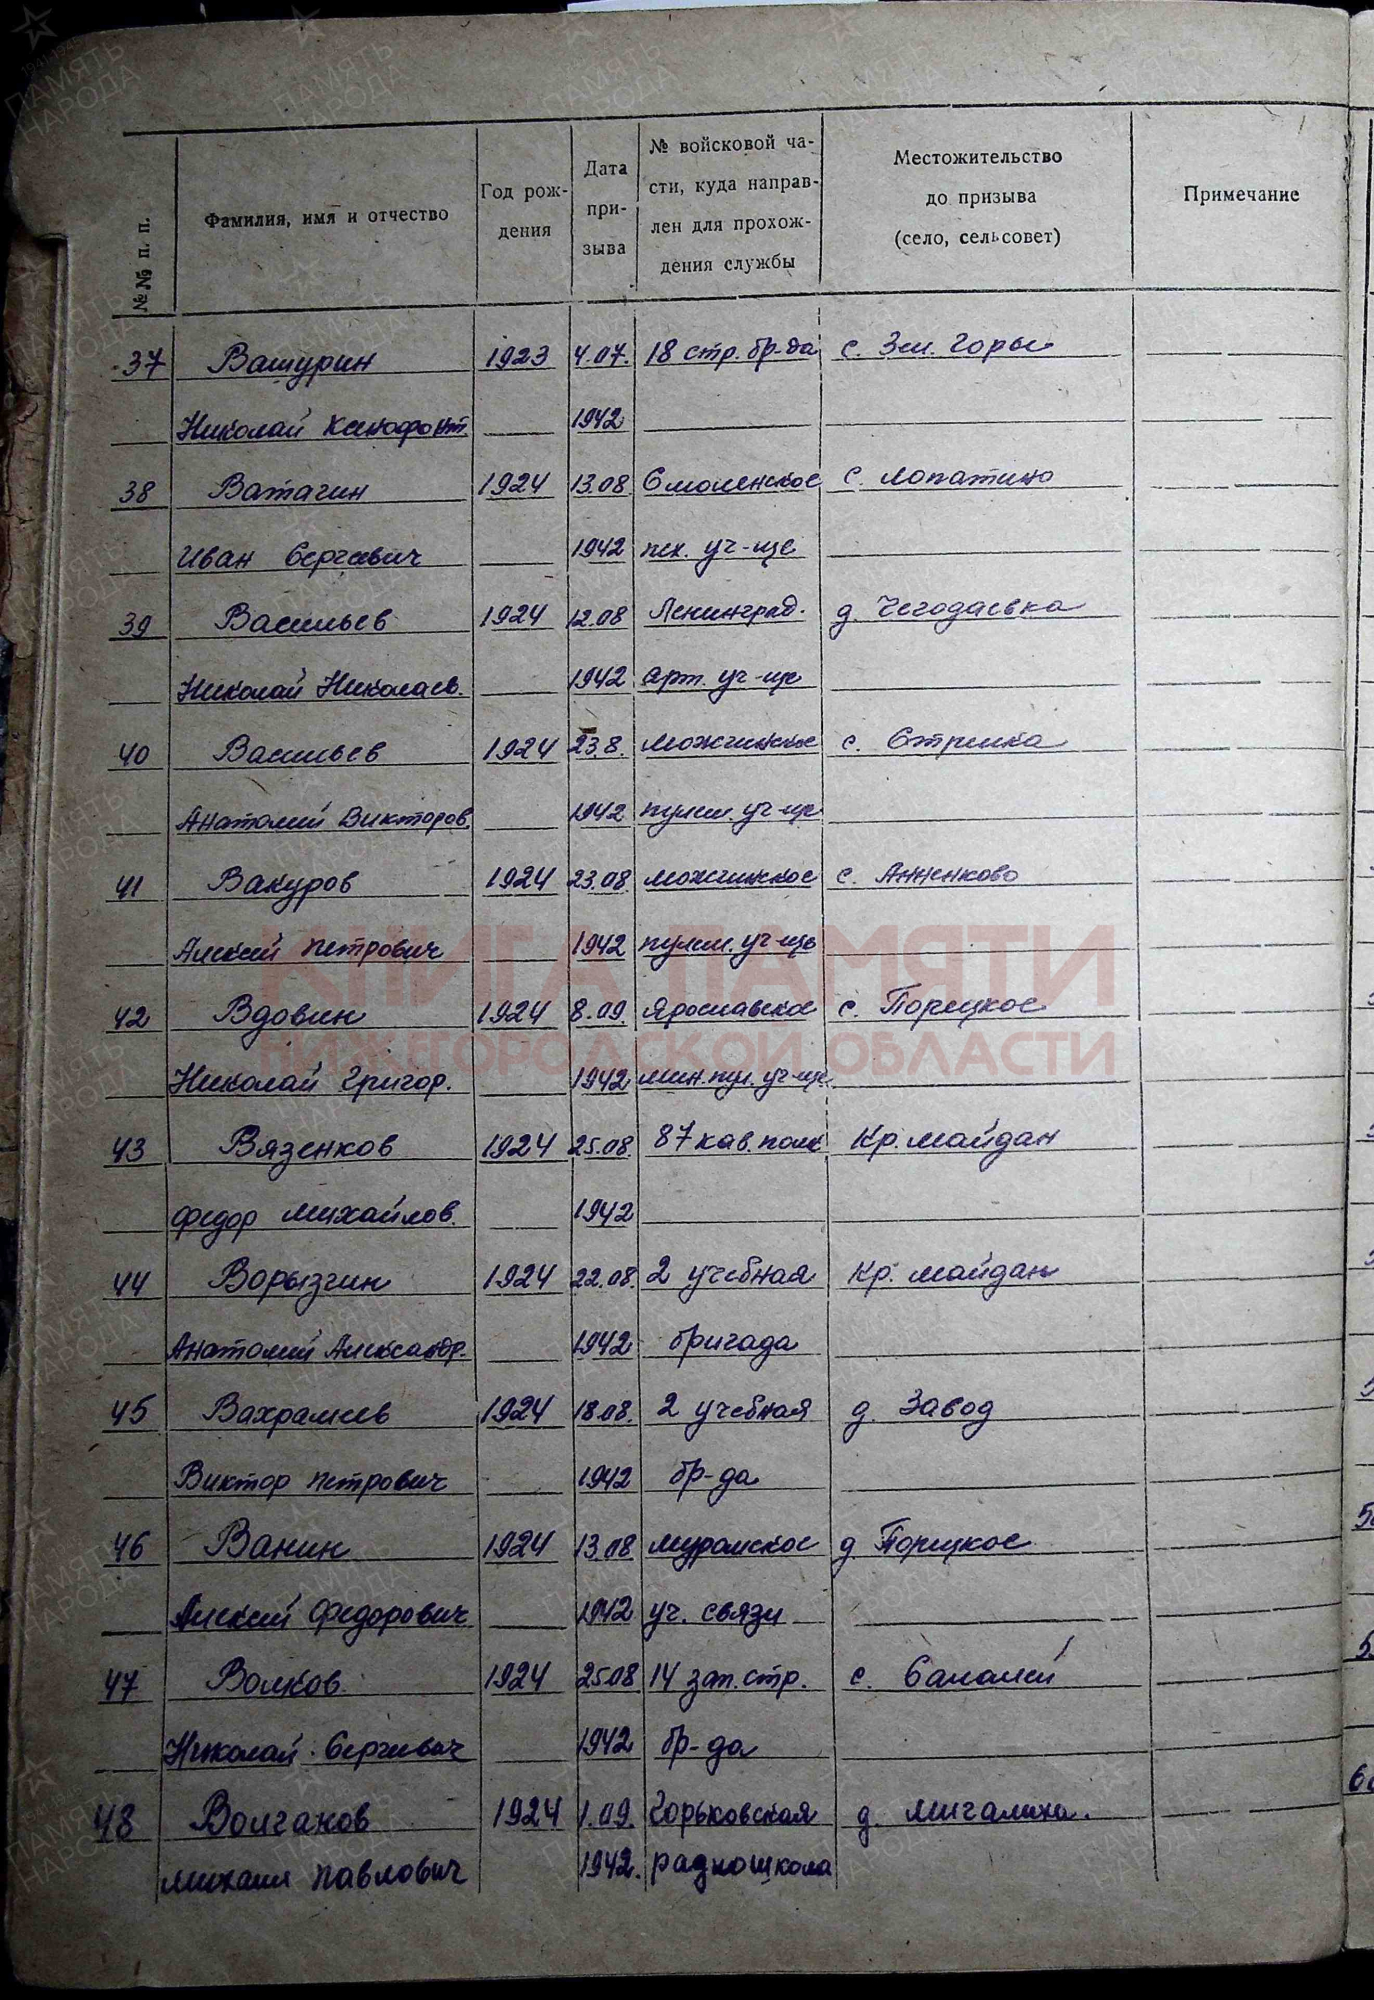 №№ п. п. Фамилия, имя и отчество Год рождения Дата призыва № войсковой части, куда направлен для прохождения службы Местожительство до призыва (село, сельсовет) Примечание
37 Вашурин 1923 4.07. 18 стр. бр-да с. Зм. Горы
Николай Ксенофонт. 1942
38 Ватагин 1924 13.08 Смоленское с. Лопатино
Иван Сергеевич 1942 пех. уч-ще
39 Васильев 1924 12.08 Ленинград. д. Чегодаевка
Николай Николаев. 1942 арт. уч-ще
40 Васильев 1924 23.8. Можгинское с. Стрелка
Анатолий Викторов. 1942 пулем. уч-ще
41 Вакуров 1924 23.08. Можгинское с. Анненково
Алексей Петрович 1942 пулем. уч-ще
42 Вдовин 1924 8.09. Ярославское с. Порецкое
Николай Григор. 1942 мин. пул. уч-ще
43 Вязенков 1924 25.08. 87 кав. полк Кр. Майдан
Федор Михайлов. 1942
44 Ворызгин 1924 22.08. 2 учебная Кр. Майдан
Анатолий Александр. 1942 бригада
45 Вахрамеев 1924 18.08. 2 учебная д. Завод
Виктор Петрович 1942 бр-да
46 Ванин 1924 13.08 Муромское д. Порецкое
Алексей Федорович 1942 уч. связи
47 Волков 1924 25.08 14 зап. стр. с.
Николай Сергеевич 1942 бр-да
48 Волганов 1924 1.09. Горьковская д. Мигалиха.
Михаил Павлович 1942. радиошкола
КНИГА ПАМЯТИ
НИЖЕГОРОДСКОЙ ОБЛАСТИ
ПАМЯТЬ НАРОДА